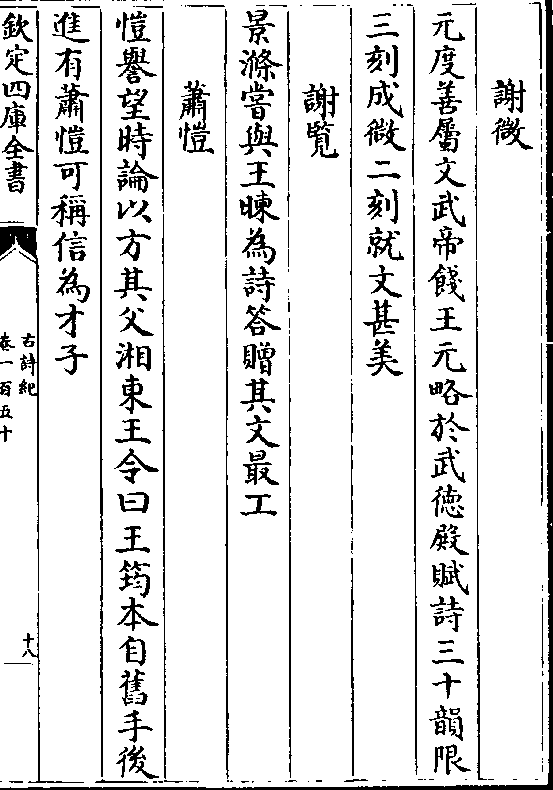 謝微
元度善屬文武帝餞王元略於武徳殿賦詩三十韻限
三刻成微二刻就文甚美
謝覧
景滌嘗與王暕為詩答贈其文最工
蕭愷
愷譽望時論以方其父湘東王令曰王筠本自舊手後
進有蕭愷可稱信為才子
欽定四庫全書
古詩紀
卷一百五十
十八